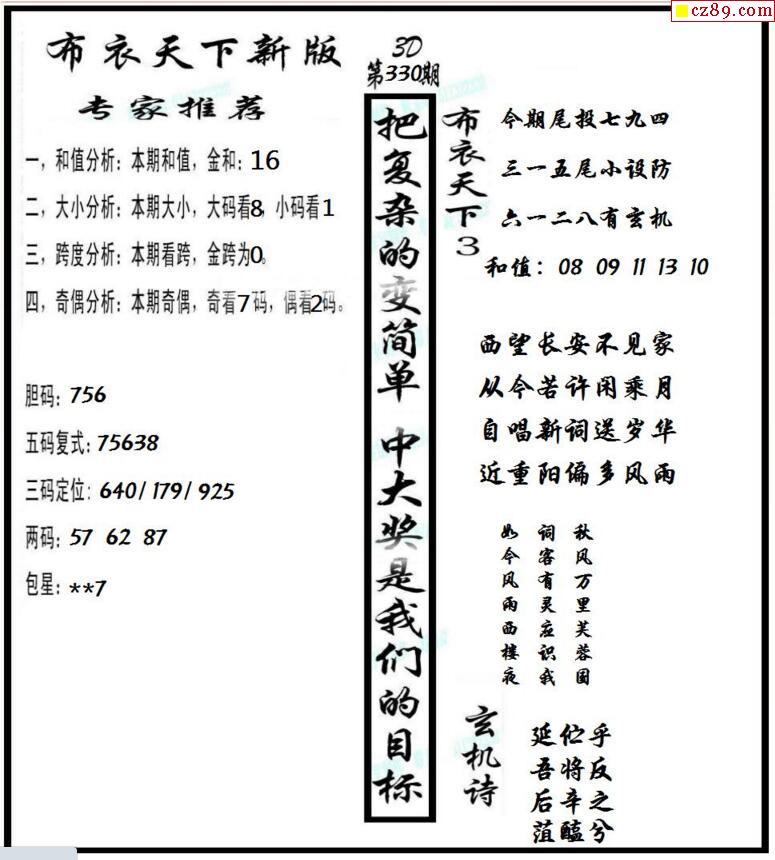 cz89.com
布衣天下新版
专家推荐
一，和值分析：本期和值，金和：16
二，大小分析：本期大小，大码看8，小码看1
三，跨度分析：本期看跨，金跨为0。
四，奇偶分析：本期奇偶，奇看7码，偶看2码。
胆码：756
五码复式：75638
三码定位：640/179/925
两码：57 62 87
包星：**7
3D
第330期
把复杂的变简单 中大奖是我们的目标
布衣天下3
今期尾投七九四
三一五尾小设防
六一二八有玄机
和值：08 09 11 13 10
西望长安不见家
从今若许闲乘月
自唱新词送岁华
近重阳偏多风雨
秋风万里芙蓉国
词客有灵应识我
如今风雨西楼夜
玄机诗
延伫乎
吾将反
后辛之
菹醢兮